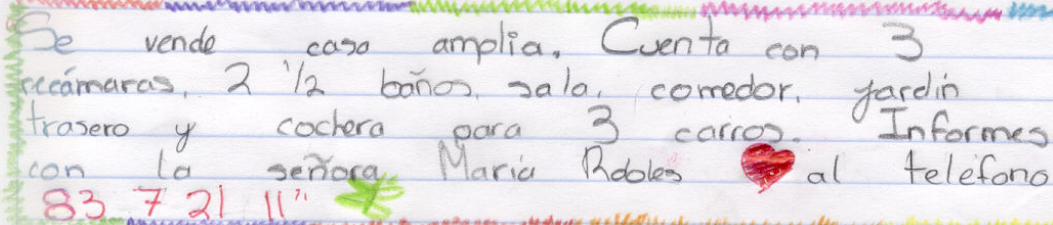 Se vende casa amplia. Cuenta con 3
recámaras, 2 1/2 baños, sala, comedor, jardín
trasero y cochera para 3 carros. Informes
con la señora María Robles al teléfono
83 7 21 11"